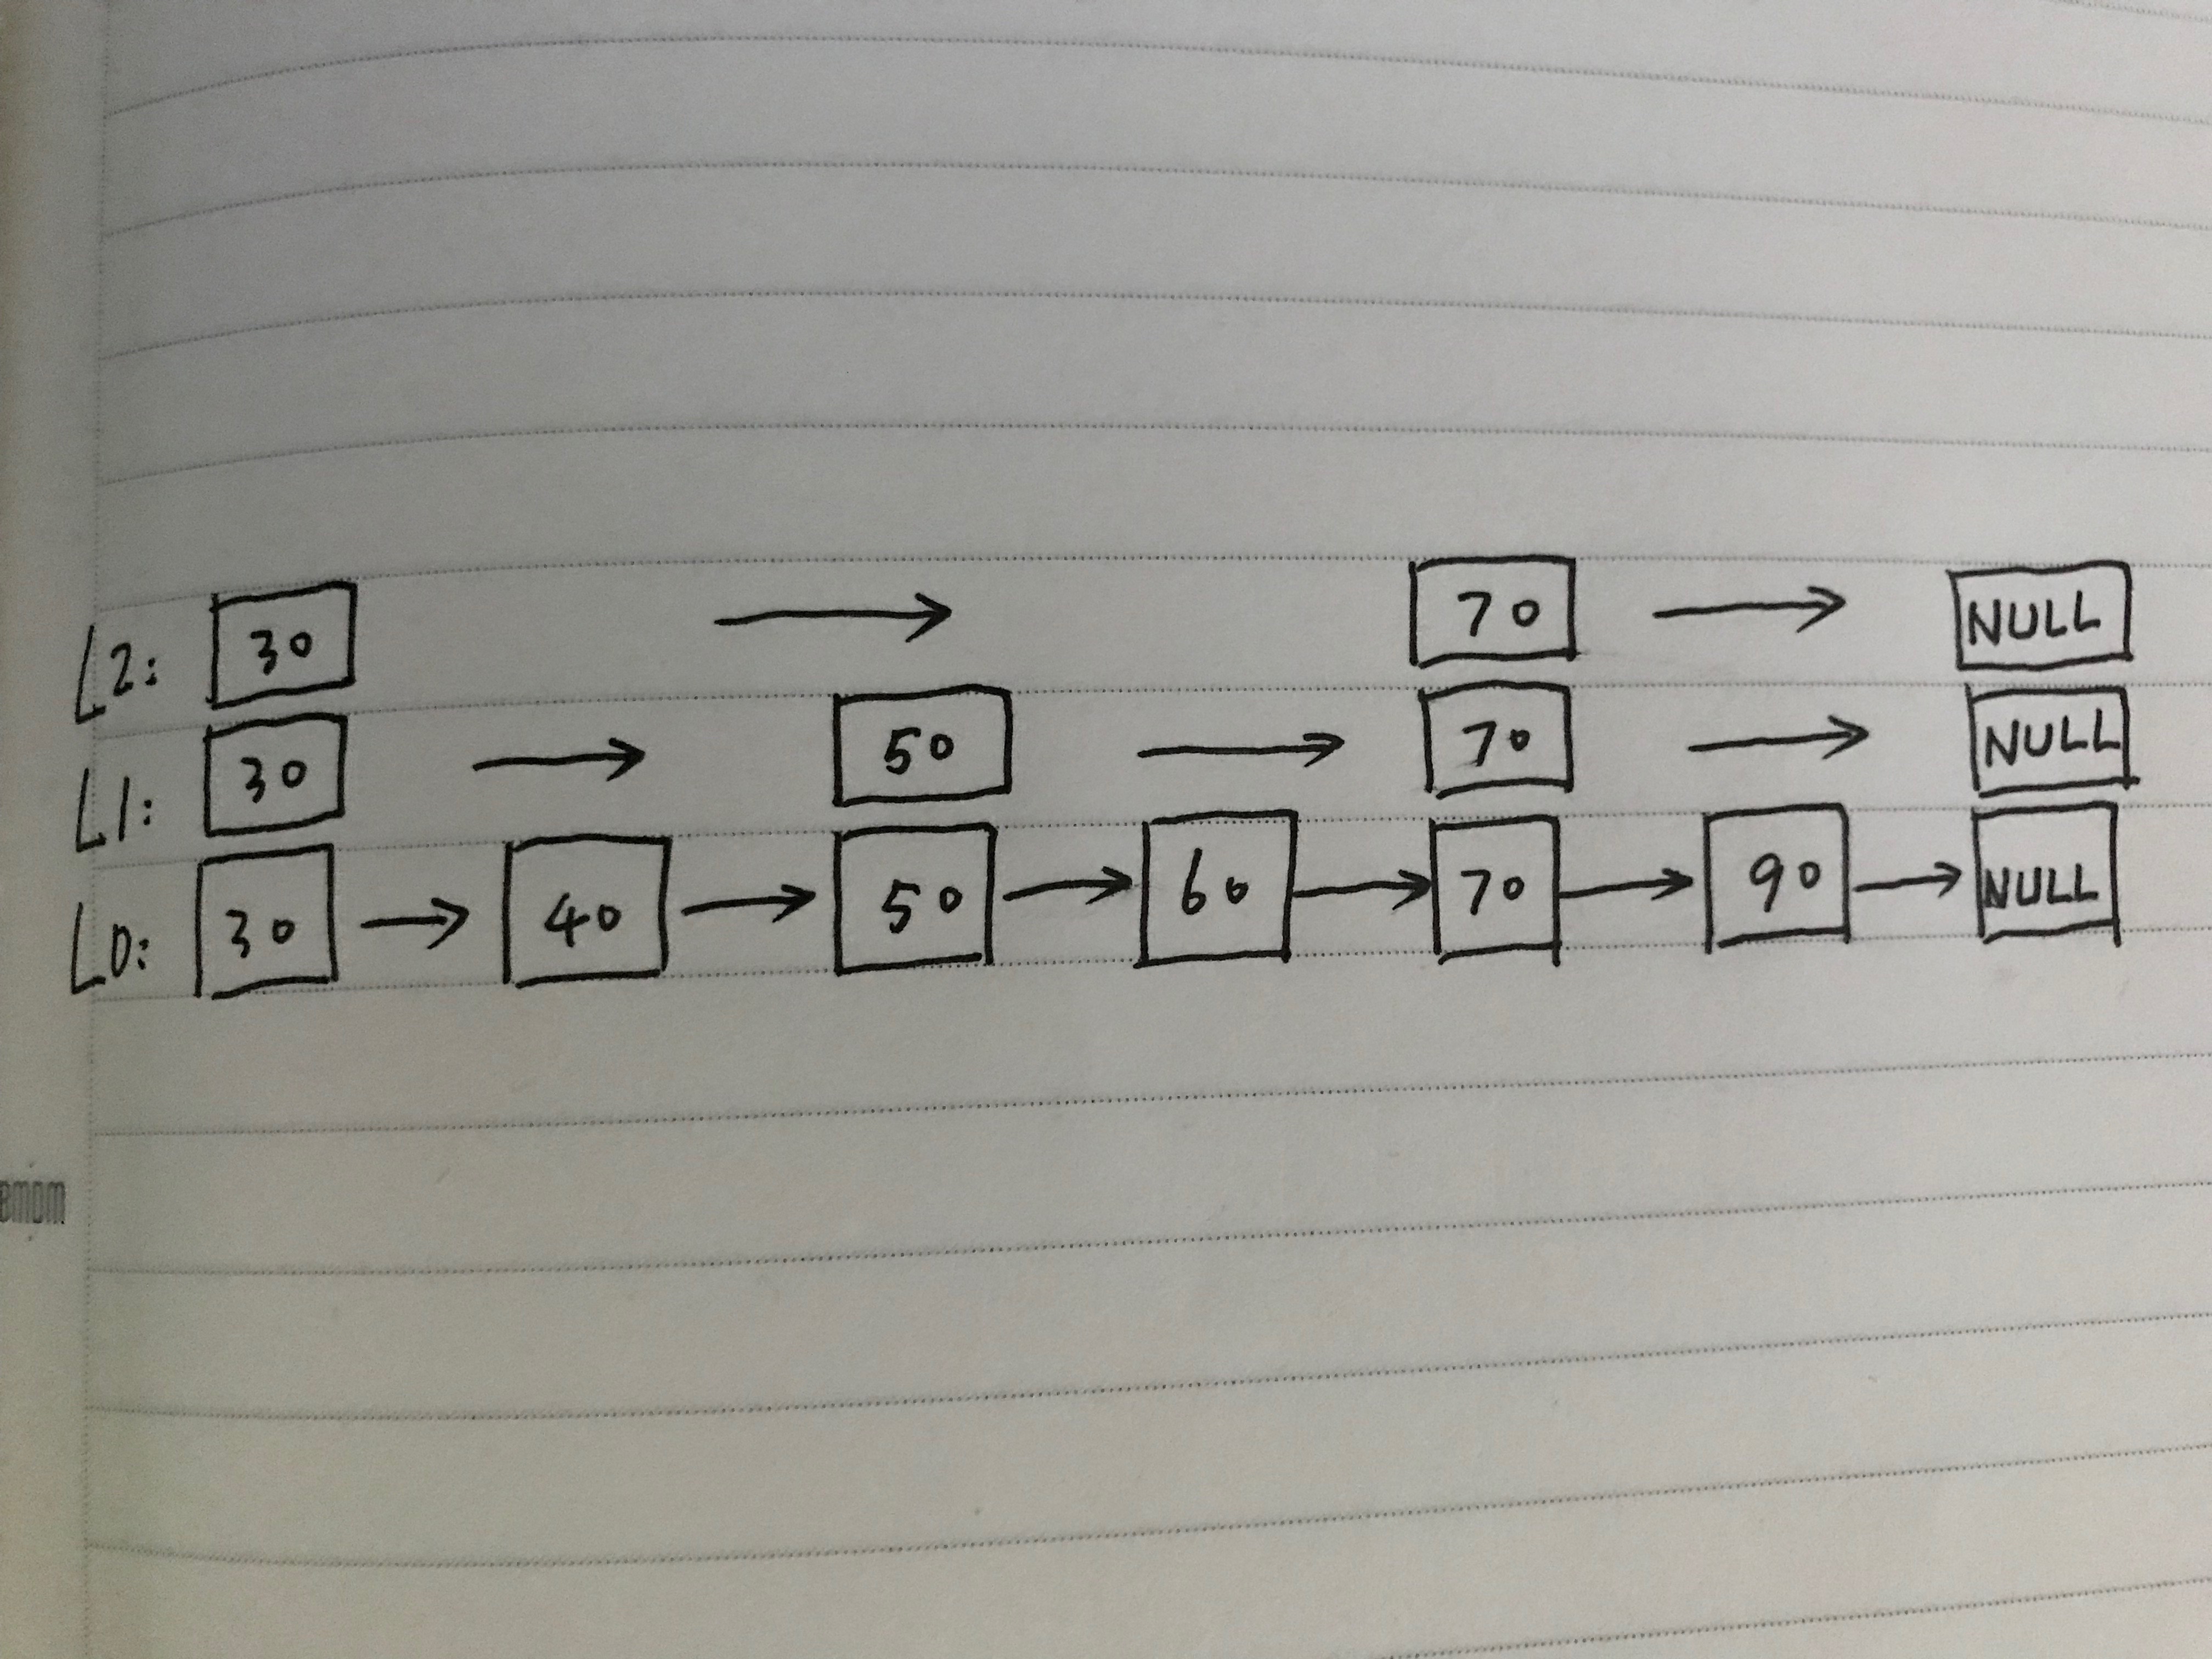 L2: 30 → 70 → NULL
L1: 30 → 50 → 70 → NULL
L0: 30 → 40 → 50 → 60 → 70 → 90 → NULL